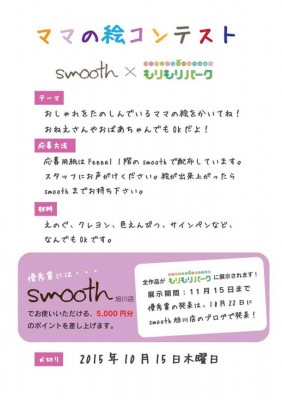 ママの絵コンテスト
smooth × もりもりパーク
テーマ
おしゃれをたのしんでいるママの絵をかいてね!
おねえさんやおばあちゃんでもOkだよ!
応募方法
応募用紙はFeeeal 1階のsmoothで配布しています。
スタッフにお声がけください。絵が出来上がったら
smoothまでお持ち下さい。
材料
えのぐ、クレヨン、色えんぴつ、サインペンなど、
なんでもOkです。
優秀賞には・・・
smooth 旭川店
でお使いいただける、5,000円分
のポイントを差し上げます。
全作品が もりもりパーク に展示されます!
展示期間:11月15日まで
優秀賞の発表は、10月22日に
smooth旭川店のブログで発表!
〆切り 2015年10月15日木曜日